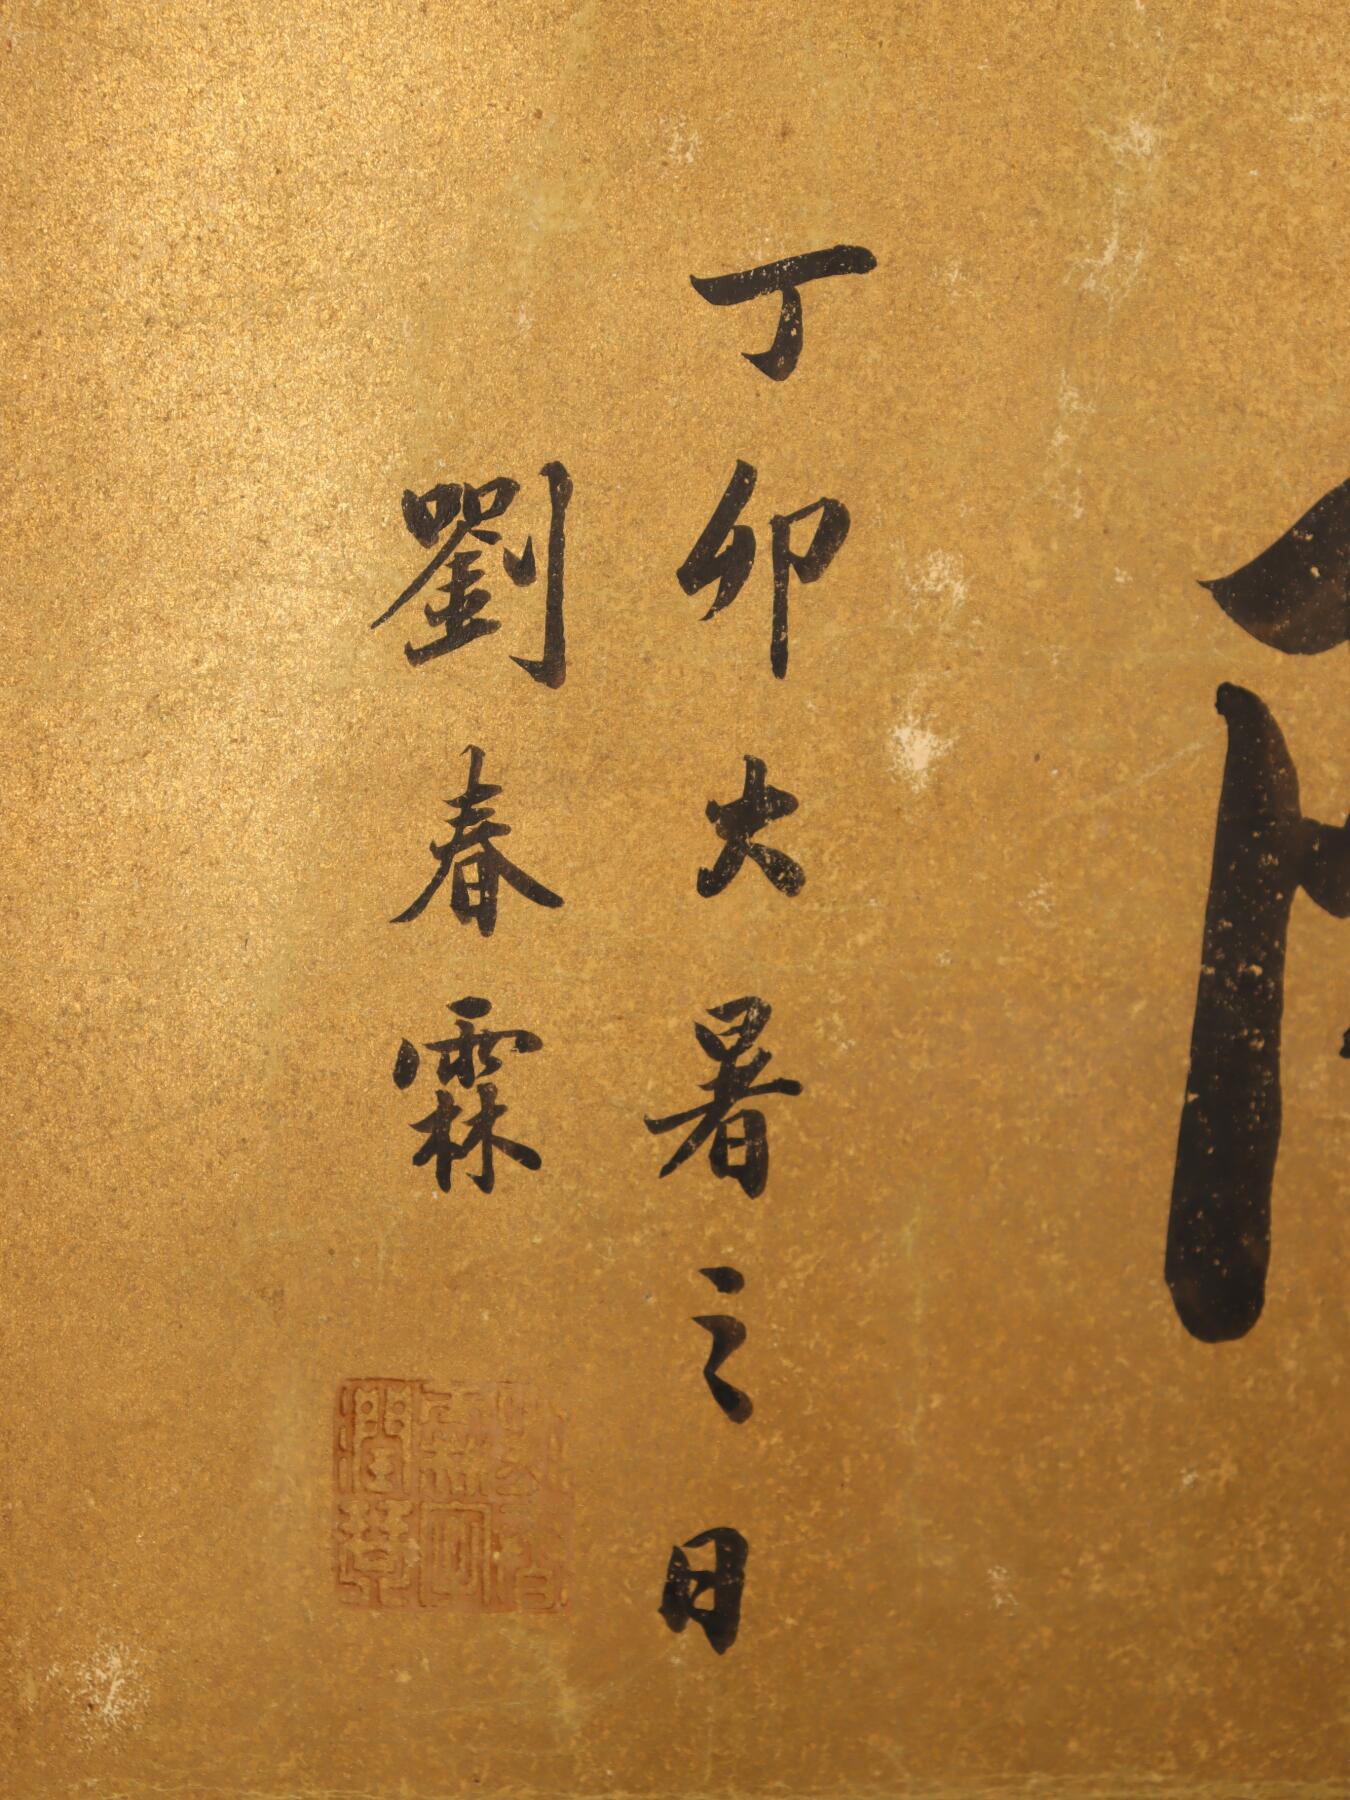 丁卯大暑之日
劉春霖